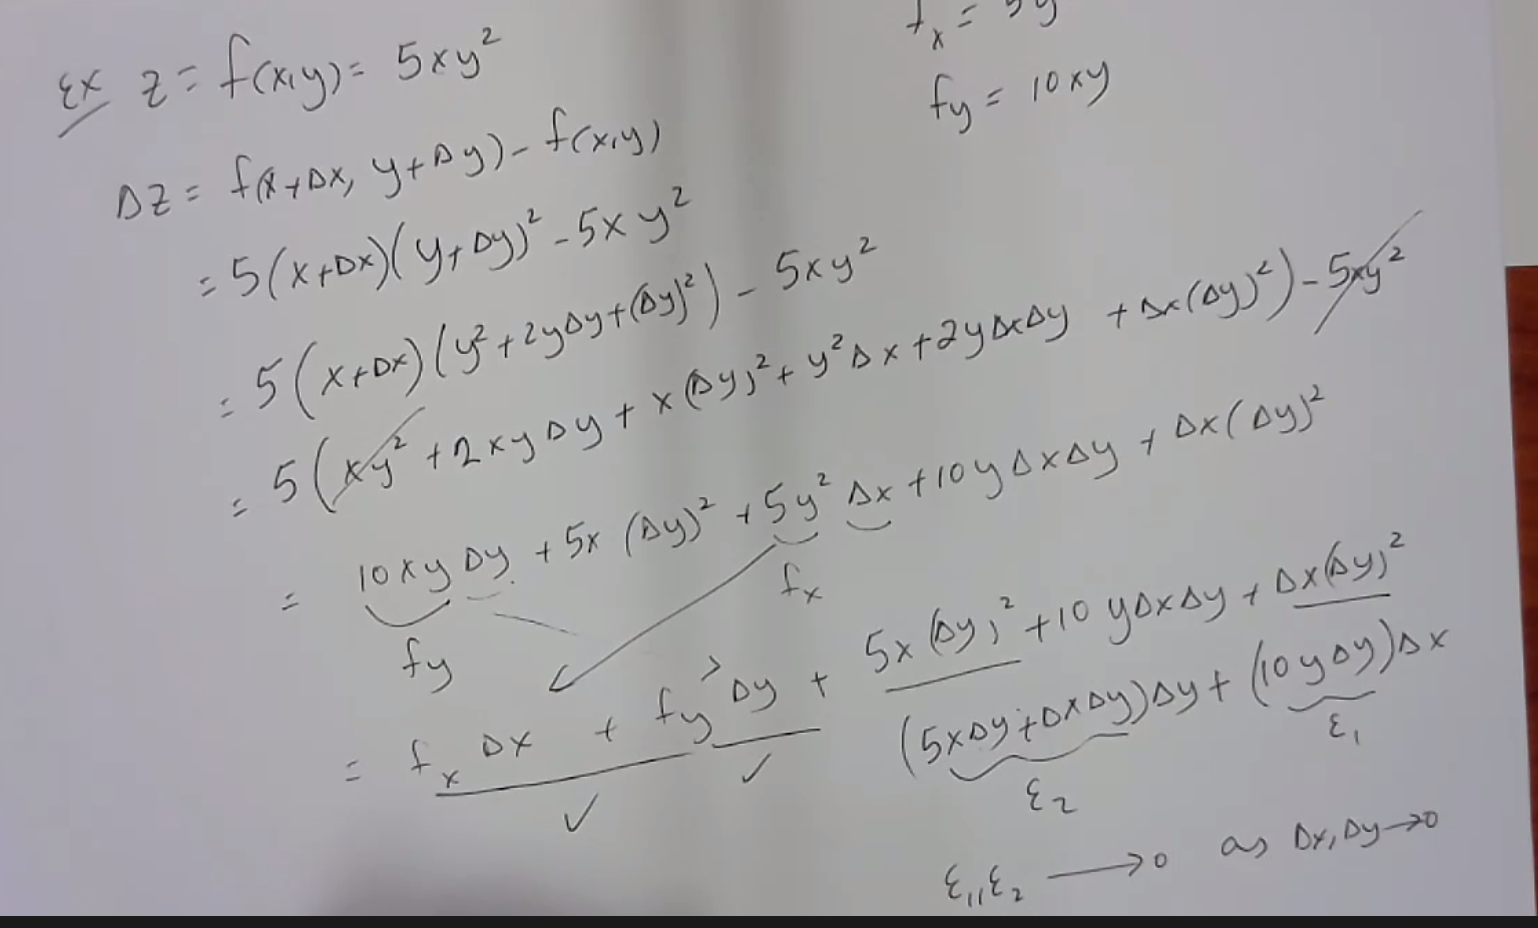 Ex z = f(x,y) = 5xy²
fx = 5y
fy = 10xy
Δz = f(x+Δx, y+Δy) - f(x,y)
= 5(x+Δx)(y+Δy)² - 5xy²
= 5(x+Δx)(y²+2yΔy+(Δy)²) - 5xy²
= 5(xy² + 2xyΔy + x(Δy)² + y²Δx + 2yΔxΔy + Δx(Δy)²) - 5xy²
= 10xyΔy + 5x(Δy)² + 5y²Δx + 10yΔxΔy + Δx(Δy)²
fy fx
= fx Δx + fy Δy + 5x(Δy)² + 10yΔxΔy + Δx(Δy)²
(5xΔy+ΔxΔy)Δy + (10yΔy)Δx
ε₂ ε₁
ε₁,ε₂ → 0 as Δx,Δy→0